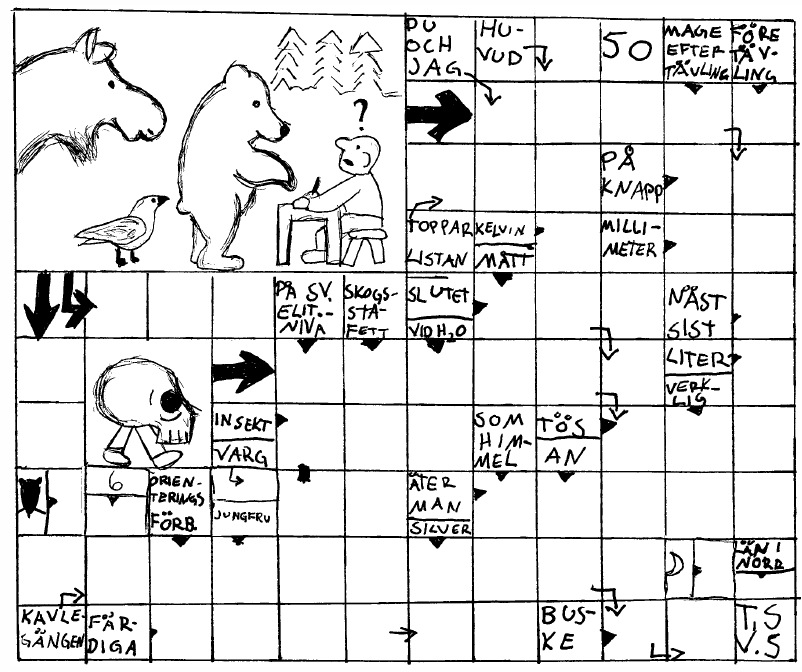 DU
OCH
JAG
HU-
VUD
50
MAGE
EFTER
TÄVLING
FÖRE
TÄV-
LING
?
PÅ
KNAPP
TOPPAR
LISTAN
KELVIN
MÅTT
MILLI-
METER
PÅ SV.
ELIT.-
NIVÅ
SKOGS-
STA-
FETT
SLUTET
VID H2O
NÄST
SIST
LITER
VERK-
LIG
INSEKT
VARG
SOM
HIM-
MEL
TÖS
AN
6
ORIEN-
TERINGS
FÖRB.
JUNGFRU
ÄTER
MAN
SILVER
ÄN I
NORD
KAVLE-
GÄNGEN
FÄR-
DIGA
BUS-
KE
T.S
V.S